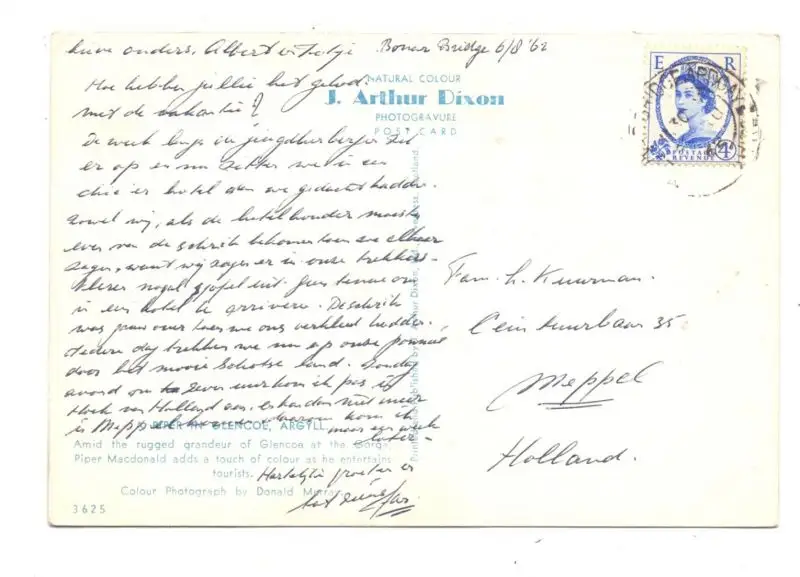 Lieve ouders, Albert en Bonar Bridge 6/8 '62
Hoe hebben jullie het gehad
met de vakantie?
De week langs de jeugdherbergen zit
er op en nu zitten we in een
chic hotel dan we gedacht hadden.
Zowel wij, als de hotelhouder moesten
even van de schrik bekomen toen we elkaar
zagen, want wij zagen er in onze trekkers-
kleren nogal sjofel uit. Geen tenue om
in een hotel te arriveren. De schrik
was gauw over toen we ons verkleed hadden.
Iedere dag trekken we nu op onze
door het mooie Schotse land. Zondag
avond om zeven uur kom ik pas in
Hoek van Holland aan, en kan dan niet meer
in Meppel daarom kom ik
maar een week
later.
Hartelijke groeten en
tot ziens
NATURAL COLOUR
J. Arthur Dixon
PHOTOGRAVURE
POST CARD
E R
POSTAGE
REVENUE
4D
Fam. H. Kuurman.
Ceintuurbaan 35
Meppel
Holland.
PIPER IN GLENCOE, ARGYLL
Amid the rugged grandeur of Glencoe at the Gorge,
Piper Macdonald adds a touch of colour as he entertains
tourists.
Colour Photograph by Donald
3625